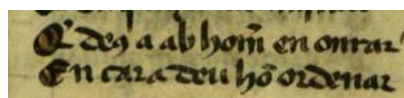 E deꝯ a ab hom̄ en onrar
En cara deu hō ordenar